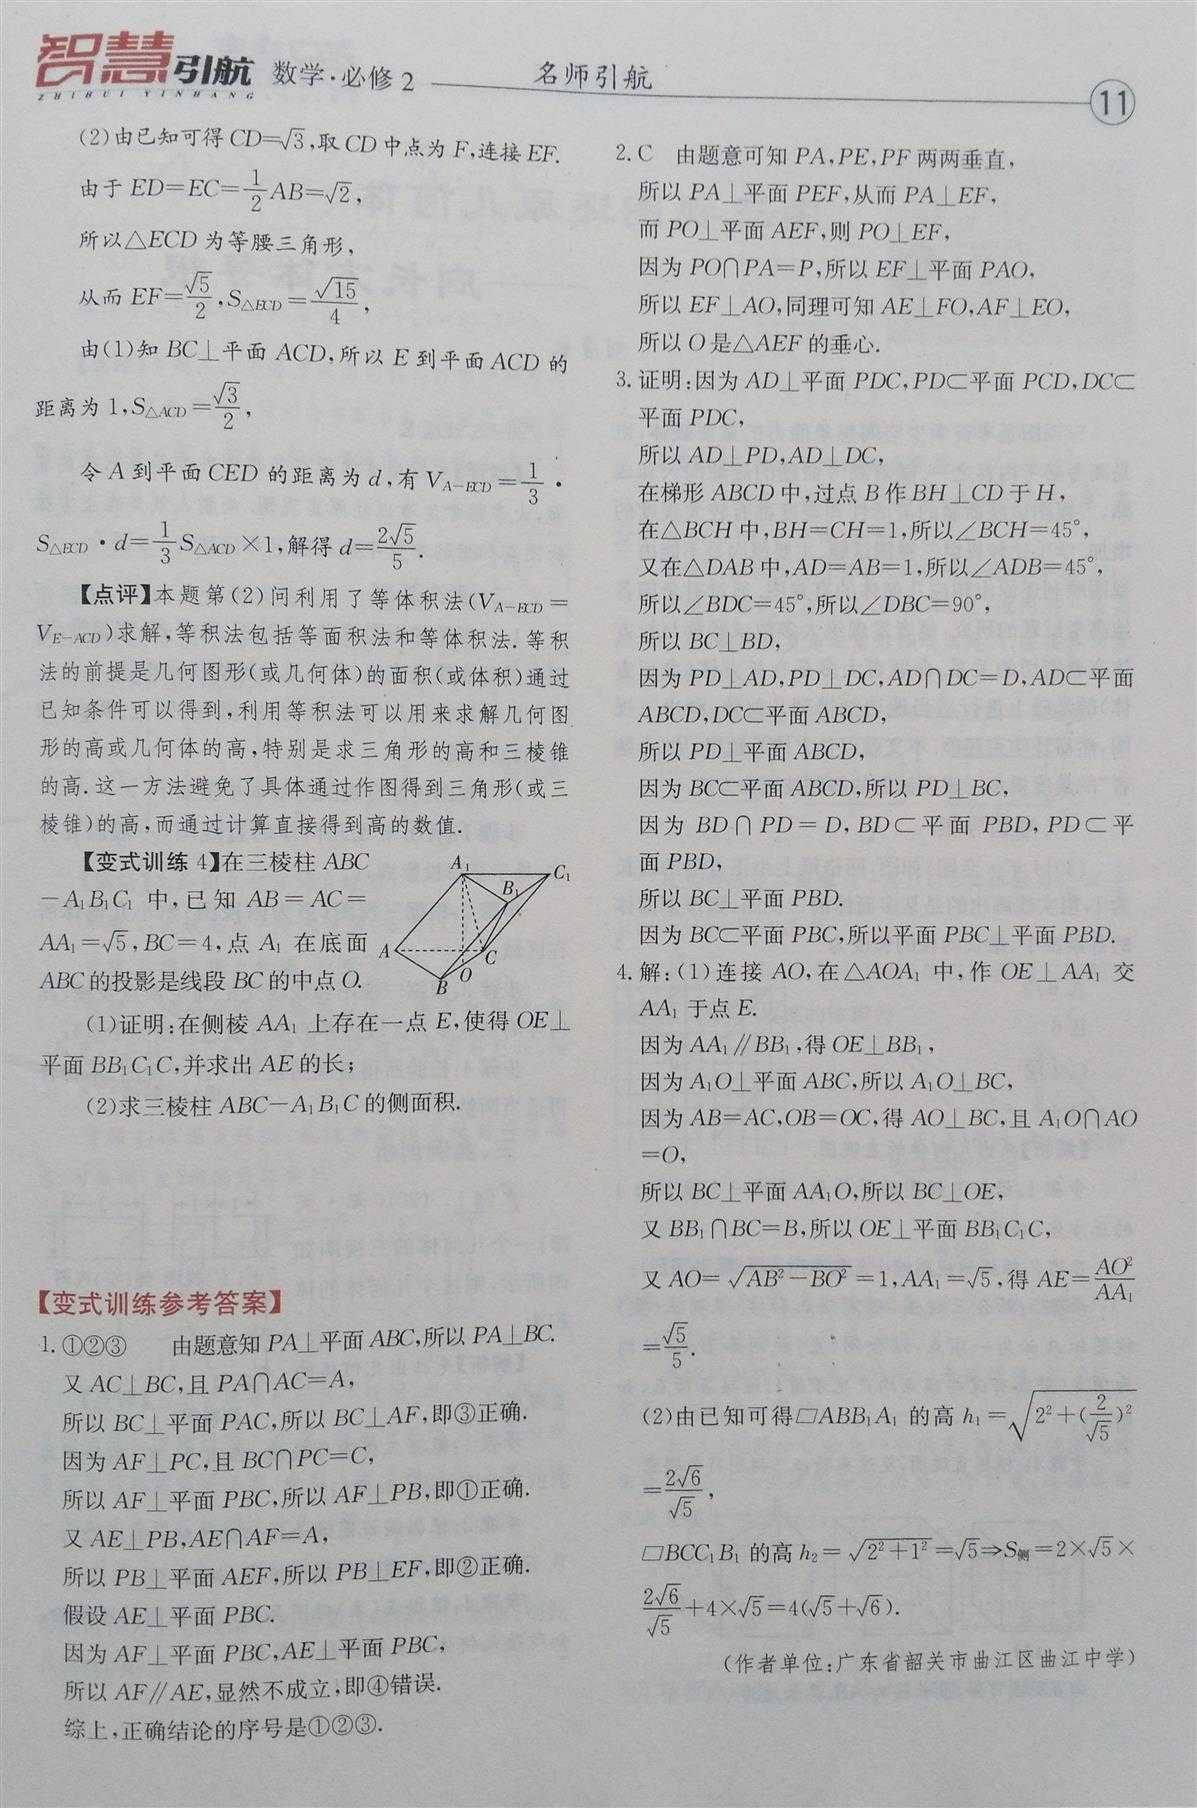 智慧引航 数学·必修2 名师引航 11
ZHIHUI YINHANG
(2)由已知可得CD=√3,取CD中点为F,连接EF.
由于ED=EC=1/2 AB=√2,
所以△ECD为等腰三角形,
从而EF=√5/2,S△ECD=√15/4,
由(1)知BC⊥平面ACD,所以E到平面ACD的
距离为1,S△ACD=√3/2,
令A到平面CED的距离为d,有V_{A-ECD}=1/3·
S△ECD·d=1/3 S△ACD×1,解得d=2√5/5.
【点评】本题第(2)问利用了等体积法(V_{A-ECD}=
V_{E-ACD})求解,等积法包括等面积法和等体积法.等积
法的前提是几何图形(或几何体)的面积(或体积)通过
已知条件可以得到,利用等积法可以用来求解几何图
形的高或几何体的高,特别是求三角形的高和三棱锥
的高.这一方法避免了具体通过作图得到三角形(或三
棱锥)的高,而通过计算直接得到高的数值.
【变式训练4】在三棱柱ABC
-A₁B₁C₁中,已知AB=AC=
AA₁=√5,BC=4,点A₁在底面
ABC的投影是线段BC的中点O.
A₁ C₁
B₁
A C
B O
(1)证明:在侧棱AA₁上存在一点E,使得OE⊥
平面BB₁C₁C,并求出AE的长;
(2)求三棱柱ABC-A₁B₁C的侧面积.
【变式训练参考答案】
1.①②③ 由题意知PA⊥平面ABC,所以PA⊥BC.
又AC⊥BC,且PA∩AC=A,
所以BC⊥平面PAC,所以BC⊥AF,即③正确.
因为AF⊥PC,且BC∩PC=C,
所以AF⊥平面PBC,所以AF⊥PB,即①正确.
又AE⊥PB,AE∩AF=A,
所以PB⊥平面AEF,所以PB⊥EF,即②正确.
假设AE⊥平面PBC.
因为AF⊥平面PBC,AE⊥平面PBC,
所以AF∥AE,显然不成立,即④错误.
综上,正确结论的序号是①②③.
2.C 由题意可知PA,PE,PF两两垂直,
所以PA⊥平面PEF,从而PA⊥EF,
而PO⊥平面AEF,则PO⊥EF,
因为PO∩PA=P,所以EF⊥平面PAO,
所以EF⊥AO,同理可知AE⊥FO,AF⊥EO,
所以O是△AEF的垂心.
3.证明:因为AD⊥平面PDC,PD⊂平面PCD,DC⊂
平面PDC,
所以AD⊥PD,AD⊥DC,
在梯形ABCD中,过点B作BH⊥CD于H,
在△BCH中,BH=CH=1,所以∠BCH=45°,
又在△DAB中,AD=AB=1,所以∠ADB=45°,
所以∠BDC=45°,所以∠DBC=90°,
所以BC⊥BD,
因为PD⊥AD,PD⊥DC,AD∩DC=D,AD⊂平面
ABCD,DC⊂平面ABCD,
所以PD⊥平面ABCD,
因为BC⊂平面ABCD,所以PD⊥BC,
因为BD∩PD=D,BD⊂平面PBD,PD⊂平
面PBD,
所以BC⊥平面PBD.
因为BC⊂平面PBC,所以平面PBC⊥平面PBD.
4.解:(1)连接AO,在△AOA₁中,作OE⊥AA₁交
AA₁于点E.
因为AA₁∥BB₁,得OE⊥BB₁,
因为A₁O⊥平面ABC,所以A₁O⊥BC,
因为AB=AC,OB=OC,得AO⊥BC,且A₁O∩AO
=O,
所以BC⊥平面AA₁O,所以BC⊥OE,
又BB₁∩BC=B,所以OE⊥平面BB₁C₁C,
又AO=√(AB²-BO²)=1,AA₁=√5,得AE=AO²/AA₁
=√5/5.
(2)由已知可得▱ABB₁A₁的高h₁=√(2²+(2/√5)²)
=2√6/√5,
▱BCC₁B₁的高h₂=√(2²+1²)=√5⇒S侧=2×√5×
2√6/√5+4×√5=4(√5+√6).
(作者单位:广东省韶关市曲江区曲江中学)